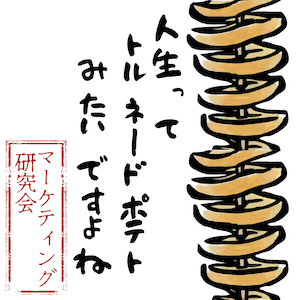 人生って
トルネードポテト
みたいですよね
マーケティング
研究会